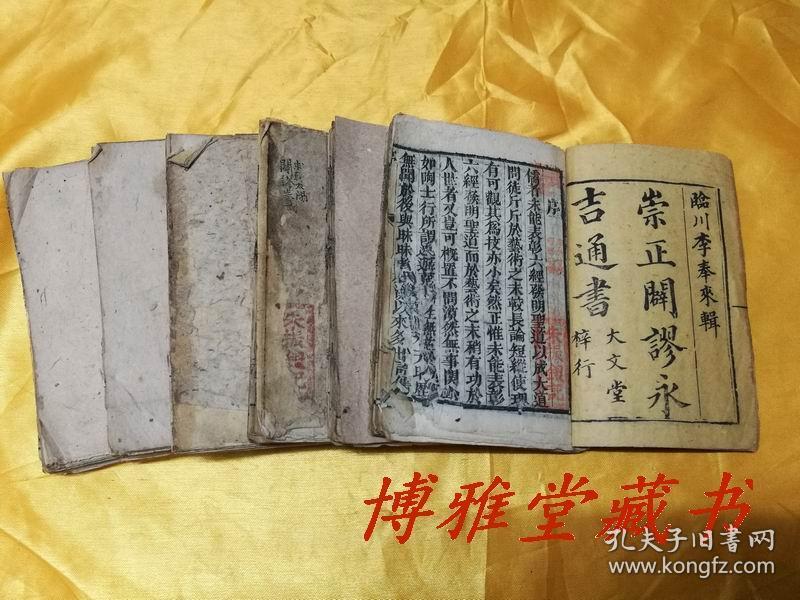 臨川李奉來輯
崇正闢謬永
吉通書
大文堂
梓行
序
儒者未能表彰六經發明聖道以成大道
問徒斤斤於藝術之末較長論短縱使理
有可觀其為技亦小矣然正惟未能表彰
六經發明聖道而於藝術之末稍有功於
人世者又豈可概置不問漠然無事関於
如陶士行所謂
無聞於後與
博雅堂藏书
孔夫子旧书网
www.kongfz.com